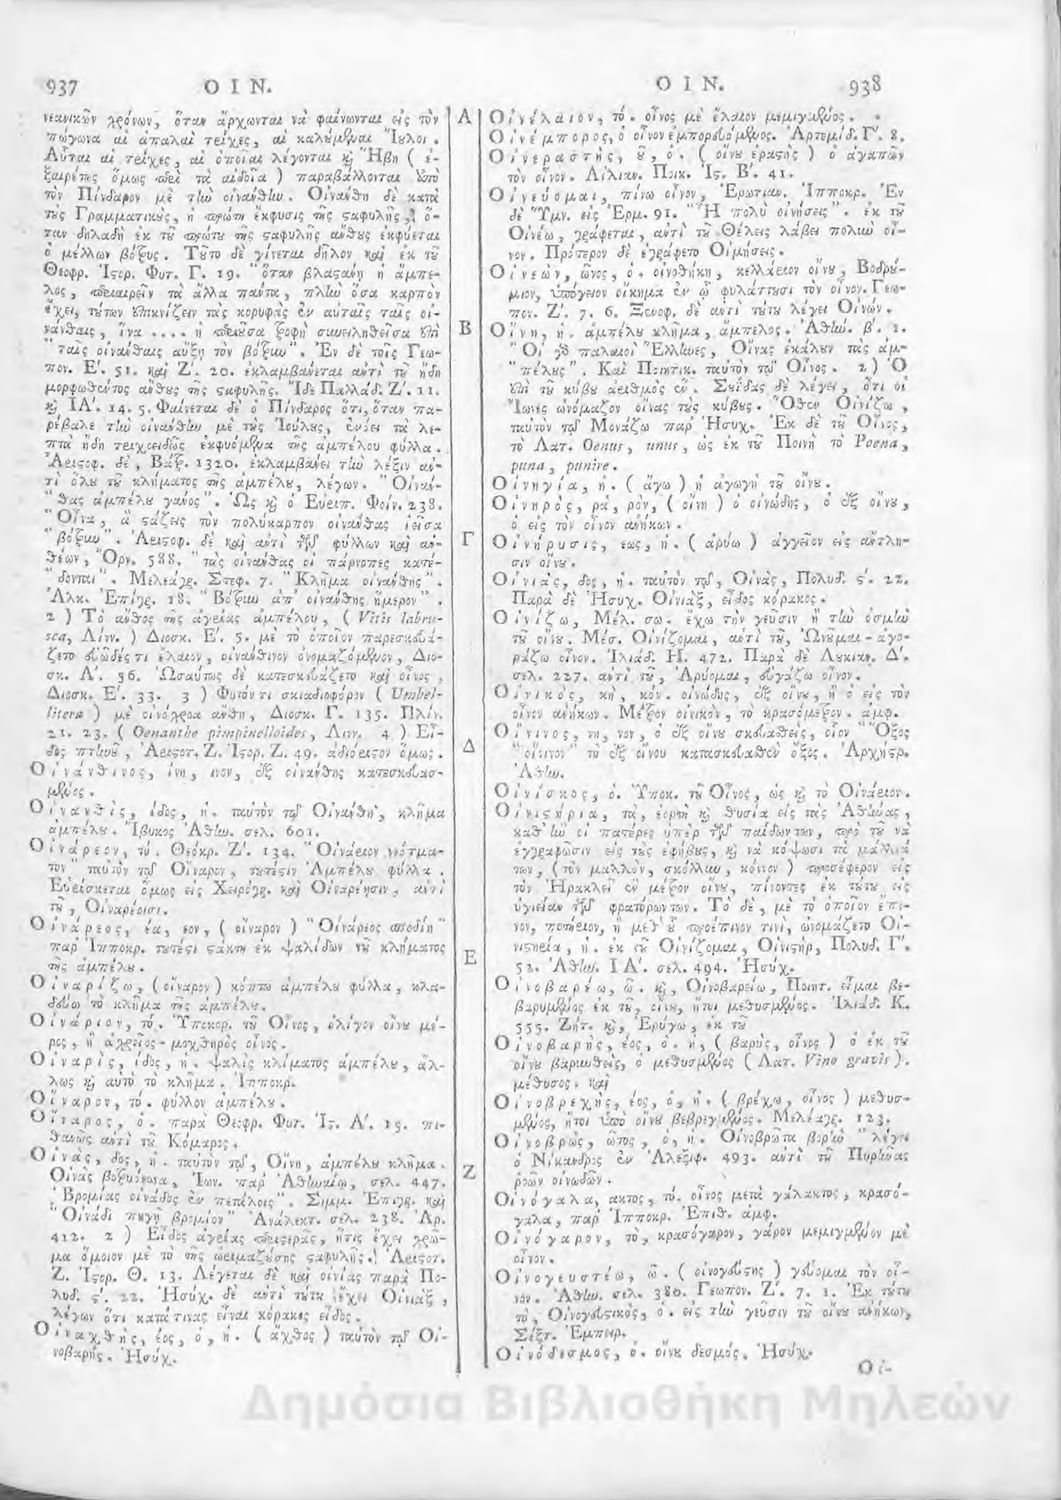 937 ΟΙΝ.
νεανικῶν χρόνων, ὅταν ἄρχωνται νὰ φαίνωνται εἰς τὸν
πώγωνα αἱ ἁπαλαὶ τρίχες, αἱ καλούμεναι Ἴουλοι.
Αὗται αἱ τρίχες, αἱ ὁποῖαι λέγονται καὶ Ἥβη ( ἐ-
ξαιρέτως ὅμως περὶ τὰ αἰδοῖα ) παραβάλλονται ὑπὸ
τὸν Πίνδαρον μὲ τὴν οἰνάνθην. Οἰνάνθη δὲ κατὰ
τοὺς Γραμματικοὺς, ἡ πρώτη ἔκφυσις τῆς σταφυλῆς, ὅ-
ταν δηλαδὴ ἐκ τοῦ πρώτου τῆς σταφυλῆς ἄνθους ἐκφύεται
ὁ μέλλων βότρυς. Τοῦτο δὲ γίνεται δῆλον καὶ ἐκ τοῦ
Θεοφρ. Ἱστορ. Φυτ. Γ. 19. "ὅταν βλαστάνῃ ἡ ἄμπε-
λος, περιαιρεῖν τὰ ἄλλα πάντα, πλὴν ὅσα καρπὸν
ἔχει, τούτων ἐπικνίζειν τὰς κορυφὰς ἐν αὐταῖς ταῖς οἰ-
νάνθαις, ἵνα .... ἡ περιοῦσα τροφὴ συνειληθεῖσα ἐπὶ
" ταῖς οἰνάνθαις αὔξῃ τὸν βότρυν". Ἐν δὲ τοῖς Γεω-
πον. Ε΄. 51. καὶ Ζ΄. 20. ἐκλαμβάνεται ἀντὶ τοῦ ἤδη
μορφωθέντος ἄνθους τῆς σταφυλῆς. Ἴδε Παλλάδ. Ζ΄. 11.
καὶ ΙΑ΄. 14. 5. Φαίνεται δὲ ὁ Πίνδαρος ὅτι, ὅταν πα-
ρέβαλε τὴν οἰνάνθην μὲ τοὺς Ἰούλους, ἐνόει τὰ λε-
πτὰ ἤδη τριχοειδῶς ἐκφυόμενα τῆς ἀμπέλου φύλλα.
Ἀριστοφ. δὲ, Βάτρ. 1320. ἐκλαμβάνει τὴν λέξιν ἀν-
τὶ ὅλου τοῦ κλήματος τῆς ἀμπέλου, λέγων. "Οἰνάν-
" θας ἀμπέλου γάνος". Ὡς καὶ ὁ Εὐριπ. Φοίν. 238.
" Οἴνα, ἃ στάζεις τὸν πολύκαρπον οἰνάνθας ἱεῖσα
" βότρυν". Ἀριστοφ. δὲ καὶ ἀντὶ τῶν φύλλων καὶ ἀν-
θέων, Ὄρν. 588. "τὰς οἰνάνθας οἱ πάρνοπες κατέ-
" δονται". Μελεάγρ. Στεφ. 7. "Κλῆμα οἰνάνθης".
Ἀλκ. Ἐπίγρ. 18. "Βότρυν ἀπ' οἰνάνθης ἥμερον".
2 ) Τὸ ἄνθος τῆς ἀγρίας ἀμπέλου, ( Vitis labru-
sca, Λίνν. ) Διοσκ. Ε΄. 5. μὲ τὸ ὁποῖον παρεσκευά-
ζετο εὐῶδές τι ἔλαιον, οἰνάνθινον ὀνομαζόμενον, Διο-
σκ. Α΄. 56. Ὡσαύτως δὲ κατεσκευάζετο καὶ οἶνος,
Διοσκ. Ε΄. 33. 3 ) Φυτόν τι σκιαδιοφόρον ( Umbel-
litera ) μὲ οἰνόχροα ἄνθη, Διοσκ. Γ. 135. Πλίν.
21. 23. ( Oenanthe pimpinelloides, Λινν. 4 ) Εἶ-
δος πτηνοῦ, Ἀριστοτ. Ζ. Ἱστορ. Ζ. 49. ἀδιόριστον ὅμως.
Οἰνάνθινος, ίνη, ινον, ἐξ οἰνάνθης κατεσκευασ-
μένος.
Οἰνανθὶς, ίδος, ἡ. ταὐτὸν τῷ Οἰνάνθη, κλῆμα
ἀμπέλου. Ἴβυκος Ἀθήν. σελ. 601.
Οἰνάρεον, τό. Θεόκρ. Ζ΄. 134. "Οἰνάρεον νεότμα-
τον" ταὐτὸν τῷ Οἴναρον, τουτέστιν Ἀμπέλου φύλλα.
Εὑρίσκεται ὅμως εἰς Χειρόγρ. καὶ Οἰναρέῃσιν, ἀντὶ
τοῦ, Οἰναρέοισι.
Οἰνάρεος, έα, εον, ( οἴναρον ) "Οἰνάρεος σποδίη"
παρ' Ἱπποκρ. τουτέστι στάκτη ἐκ ψαλίδων τοῦ κλήματος
τῆς ἀμπέλου.
Οἰναρίζω, ( οἴναρον ) κόπτω ἀμπέλου φύλλα, κλα-
δεύω τὸ κλῆμα τῆς ἀμπέλου.
Οἰνάριον, τό. Ὑποκορ. τοῦ Οἶνος, ὀλίγον οἴνου μέ-
ρος, ἢ ἀχρεῖος - μοχθηρὸς οἶνος.
Οἰναρὶς, ίδος, ἡ. ψαλὶς κλίματος ἀμπέλου, ἄλ-
λως καὶ αὐτὸ τὸ κλῆμα. Ἱπποκρ.
Οἴναρον, τό. φύλλον ἀμπέλου.
Οἴναρος, ὁ. παρὰ Θεοφρ. Φυτ. Ἱς. Α΄. 15. πι-
θανῶς ἀντὶ τοῦ Κόμαρος.
Οἰνὰς, δος, ἡ. ταὐτὸν τῷ, Οἴνη, ἀμπέλου κλῆμα.
Οἰνὰς βοτρυόεσσα, Ἴων. παρ' Ἀθηναίῳ, σελ. 447.
" Βρομίας οἰνάδος ἐν πετάλοις". Σιμμ. Ἐπιγρ. καὶ
" Οἰνάδι πηγῇ βρομίου" Ἀνάλεκτ. σελ. 238. Ἀρ.
412. 2 ) Εἶδος ἀγρίας περιστερᾶς, ἥτις ἔχει χρῶ-
μα ὅμοιον μὲ τὸ τῆς ὡριμαζούσης σταφυλῆς. Ἀριστοτ.
Ζ. Ἱστορ. Θ. 13. Λέγεται δὲ καὶ οἰνίας παρὰ Πο-
λυδ. ς΄. 22. Ἡσύχ. δὲ ἀντὶ τούτου ἔχει Οἰνιὰξ,
λέγων ὅτι κατά τινας εἶναι κόρακος εἶδος.
Οἰναχθὴς, έος, ὁ, ἡ. ( ἄχθος ) ταὐτὸν τῷ Οἰ-
νοβαρής. Ἡσύχ.
Α
Β
Γ
Δ
Ε
Ζ
ΟΙΝ. 938
Οἰνέλαιον, τό. οἶνος μὲ ἔλαιον μεμιγμένος.
Οἰνέμπορος, ὁ οἶνον ἐμπορευόμενος. Ἀρτεμίδ. Γ΄. 8.
Οἰνεραστὴς, οῦ, ὁ. ( οἴνου ἐραστὴς ) ὁ ἀγαπῶν
τὸν οἶνον. Αἰλιαν. Ποικ. Ἱς. Β΄. 41.
Οἰνεύομαι, πίνω οἶνον, Ἐρωτιαν. Ἱπποκρ. Ἐν
δὲ Ὕμν. εἰς Ἑρμ. 91. "Ἢ πολὺ οἰνήσεις". ἐκ τοῦ
Οἰνέω, γράφεται, ἀντὶ τοῦ Θέλεις λάβει πολὺν οἶ-
νον. Πρότερον δὲ ἐγράφετο Οἰμήσεις.
Οἰνεὼν, ῶνος, ὁ. οἰνοθήκη, κελλάριον οἴνου, Βοθρύ-
μιον, ὑπόγειον οἴκημα ἐν ᾧ φυλάττουσι τὸν οἶνον. Γεω-
πον. Ζ΄. 7. 6. Ξενοφ. δὲ ἀντὶ τούτου λέγει Οἰνών.
Οἴνη, ἡ. ἀμπέλου κλῆμα, ἄμπελος. Ἀθήν. β΄. 1.
" Οἱ γὰρ παλαιοὶ Ἕλληνες, Οἴνας ἐκάλουν τὰς ἀμ-
" πέλους". Καὶ Ποιητικ. ταὐτὸν τῷ Οἶνος. 2 ) Ὁ
ἐπὶ τοῦ κύβου ἀριθμὸς ἕν. Σουΐδας δὲ λέγει, ὅτι οἱ
Ἴωνες ὠνόμαζον οἴνας τοὺς κύβους. Ὅθεν Οἰνίζω,
ταὐτὸν τῷ Μονάζω παρ' Ἡσυχ. Ἐκ δὲ τοῦ Οἶνος,
τὸ Λατ. Oenus, unus, ὡς ἐκ τοῦ Ποινὴ τὸ Poena,
puna, punire.
Οἰνηγία, ἡ. ( ἄγω ) ἡ ἀγωγὴ τοῦ οἴνου.
Οἰνηρὸς, ρὰ, ρὸν, ( οἴνη ) ὁ οἰνώδης, ὁ ἐξ οἴνου,
ὁ εἰς τὸν οἶνον ἀνήκων.
Οἰνήρυσις, εως, ἡ. ( ἀρύω ) ἀγγεῖον εἰς ἄντλη-
σιν οἴνου.
Οἰνιὰς, δος, ἡ. ταὐτὸν τῷ, Οἰνὰς, Πολυδ. ς΄. 22.
Παρὰ δὲ Ἡσυχ. Οἰνιὰξ, εἶδος κόρακος.
Οἰνίζω, Μέλ. σω. ἔχω τὴν γεῦσιν ἢ τὴν ὀσμὴν
τοῦ οἴνου. Μέσ. Οἰνίζομαι, ἀντὶ τοῦ, Ὠνοῦμαι - ἀγο-
ράζω οἶνον. Ἰλιάδ. Η. 472. Παρὰ δὲ Λουκιαν. Δ΄.
σελ. 227. ἀντὶ τοῦ, Ἀρύομαι, εὐγάζω οἶνον.
Οἰνικὸς, κὴ, κόν. οἰνώδης, ἐξ οἴνου, ἢ ὁ εἰς τὸν
οἶνον ἀνήκων. Μέτρον οἰνικὸν, τὸ κρασόμετρον. ἀμφ.
Οἴνινος, νη, νον, ὁ ἐξ οἴνου σκευασθεὶς, οἷον "Ὄξος
" οἴνινον" τὸ ἐξ οἴνου κατασκευασθὲν ὄξος. Ἀρχήστρ.
Ἀθήν.
Οἰνίσκος, ὁ. Ὑποκ. τοῦ Οἶνος, ὡς καὶ τὸ Οἰνάριον.
Οἰνιστήρια, τὰ, ἑορτὴ καὶ θυσία εἰς τὰς Ἀθήνας,
καθ' ἣν οἱ πατέρες ὑπὲρ τῶν παίδων των, πρὸ τοῦ νὰ
ἐγγραφῶσιν εἰς τοὺς ἐφήβους, καὶ νὰ κόψωσι τὰ μαλλιά
των, (τὸν μαλλὸν, σκόλλυν, κόννον ) προσέφερον εἰς
τὸν Ἡρακλεῖ ἓν μέτρον οἴνου, πίνοντες ἐκ τούτου εἰς
ὑγιείαν τῶν φρατόρων των. Τὸ δὲ, μὲ τὸ ὁποῖον ἔπι-
νον, ποτήριον, ἢ μεθ' οὗ προέπινον τινὶ, ὠνομάζετο Οἰ-
νιστηρία, ἡ. ἐκ τοῦ Οἰνίζομαι, Οἰνιστὴρ, Πολυδ. Γ΄.
52. Ἀθήν. ΙΑ΄. σελ. 494. Ἡσύχ.
Οἰνοβαρέω, ῶ. καὶ, Οἰνοβαρείω, Ποιητ. εἶμαι βε-
βαρυμένος ἐκ τοῦ, οἴνου, ἤτοι μεθυσμένος. Ἰλιάδ. Κ.
555. Ζήτ. καὶ, Ἐρύγω, ἐκ τοῦ
Οἰνοβαρὴς, έος, ὁ. ἡ, ( βαρὺς, οἶνος ) ὁ ἐκ τοῦ
οἴνου βαρυνθεὶς, ὁ μεθυσμένος ( Λατ. Vino gravis ).
μέθυσος. καὶ
Οἰνοβρεχὴς, έος, ὁ, ἡ. ( βρέχω, οἶνος ) μεθυσ-
μένος, ἤτοι ὑπὸ οἴνου βεβρεγμένος. Μελεάγρ. 123.
Οἰνοβρὼς, ῶτος, ὁ, ἡ. Οἰνοβρῶτα βορὴν λέγει
ὁ Νίκανδρος ἐν Ἀλεξιφ. 493. ἀντὶ τοῦ Πυρῆνας
ῥοῶν οἰνωδῶν.
Οἰνόγαλα, ακτος, τό. οἶνος μετὰ γάλακτος, κρασό-
γαλα, παρ' Ἱπποκρ. Ἐπιδ. ἀμφ.
Οἰνόγαρον, τό, κρασόγαρον, γάρον μεμιγμένον μὲ
οἶνον.
Οἰνογευστέω, ῶ. ( οἰνογεύστης ) γεύομαι τὸν οἶ-
νον. Ἀθήν. σελ. 380. Γεωπον. Ζ΄. 7. 1. Ἐκ τούτου
τὸ, Οἰνογευστικὸς, ὁ. εἰς τὴν γεῦσιν τοῦ οἴνου ἀνήκων,
Σέξτ. Ἐμπειρ.
Οἰνόδεσμος, ὁ. οἴνου δεσμός. Ἡσύχ.
Οἰ-
Δημόσια Βιβλιοθήκη Μηλεών